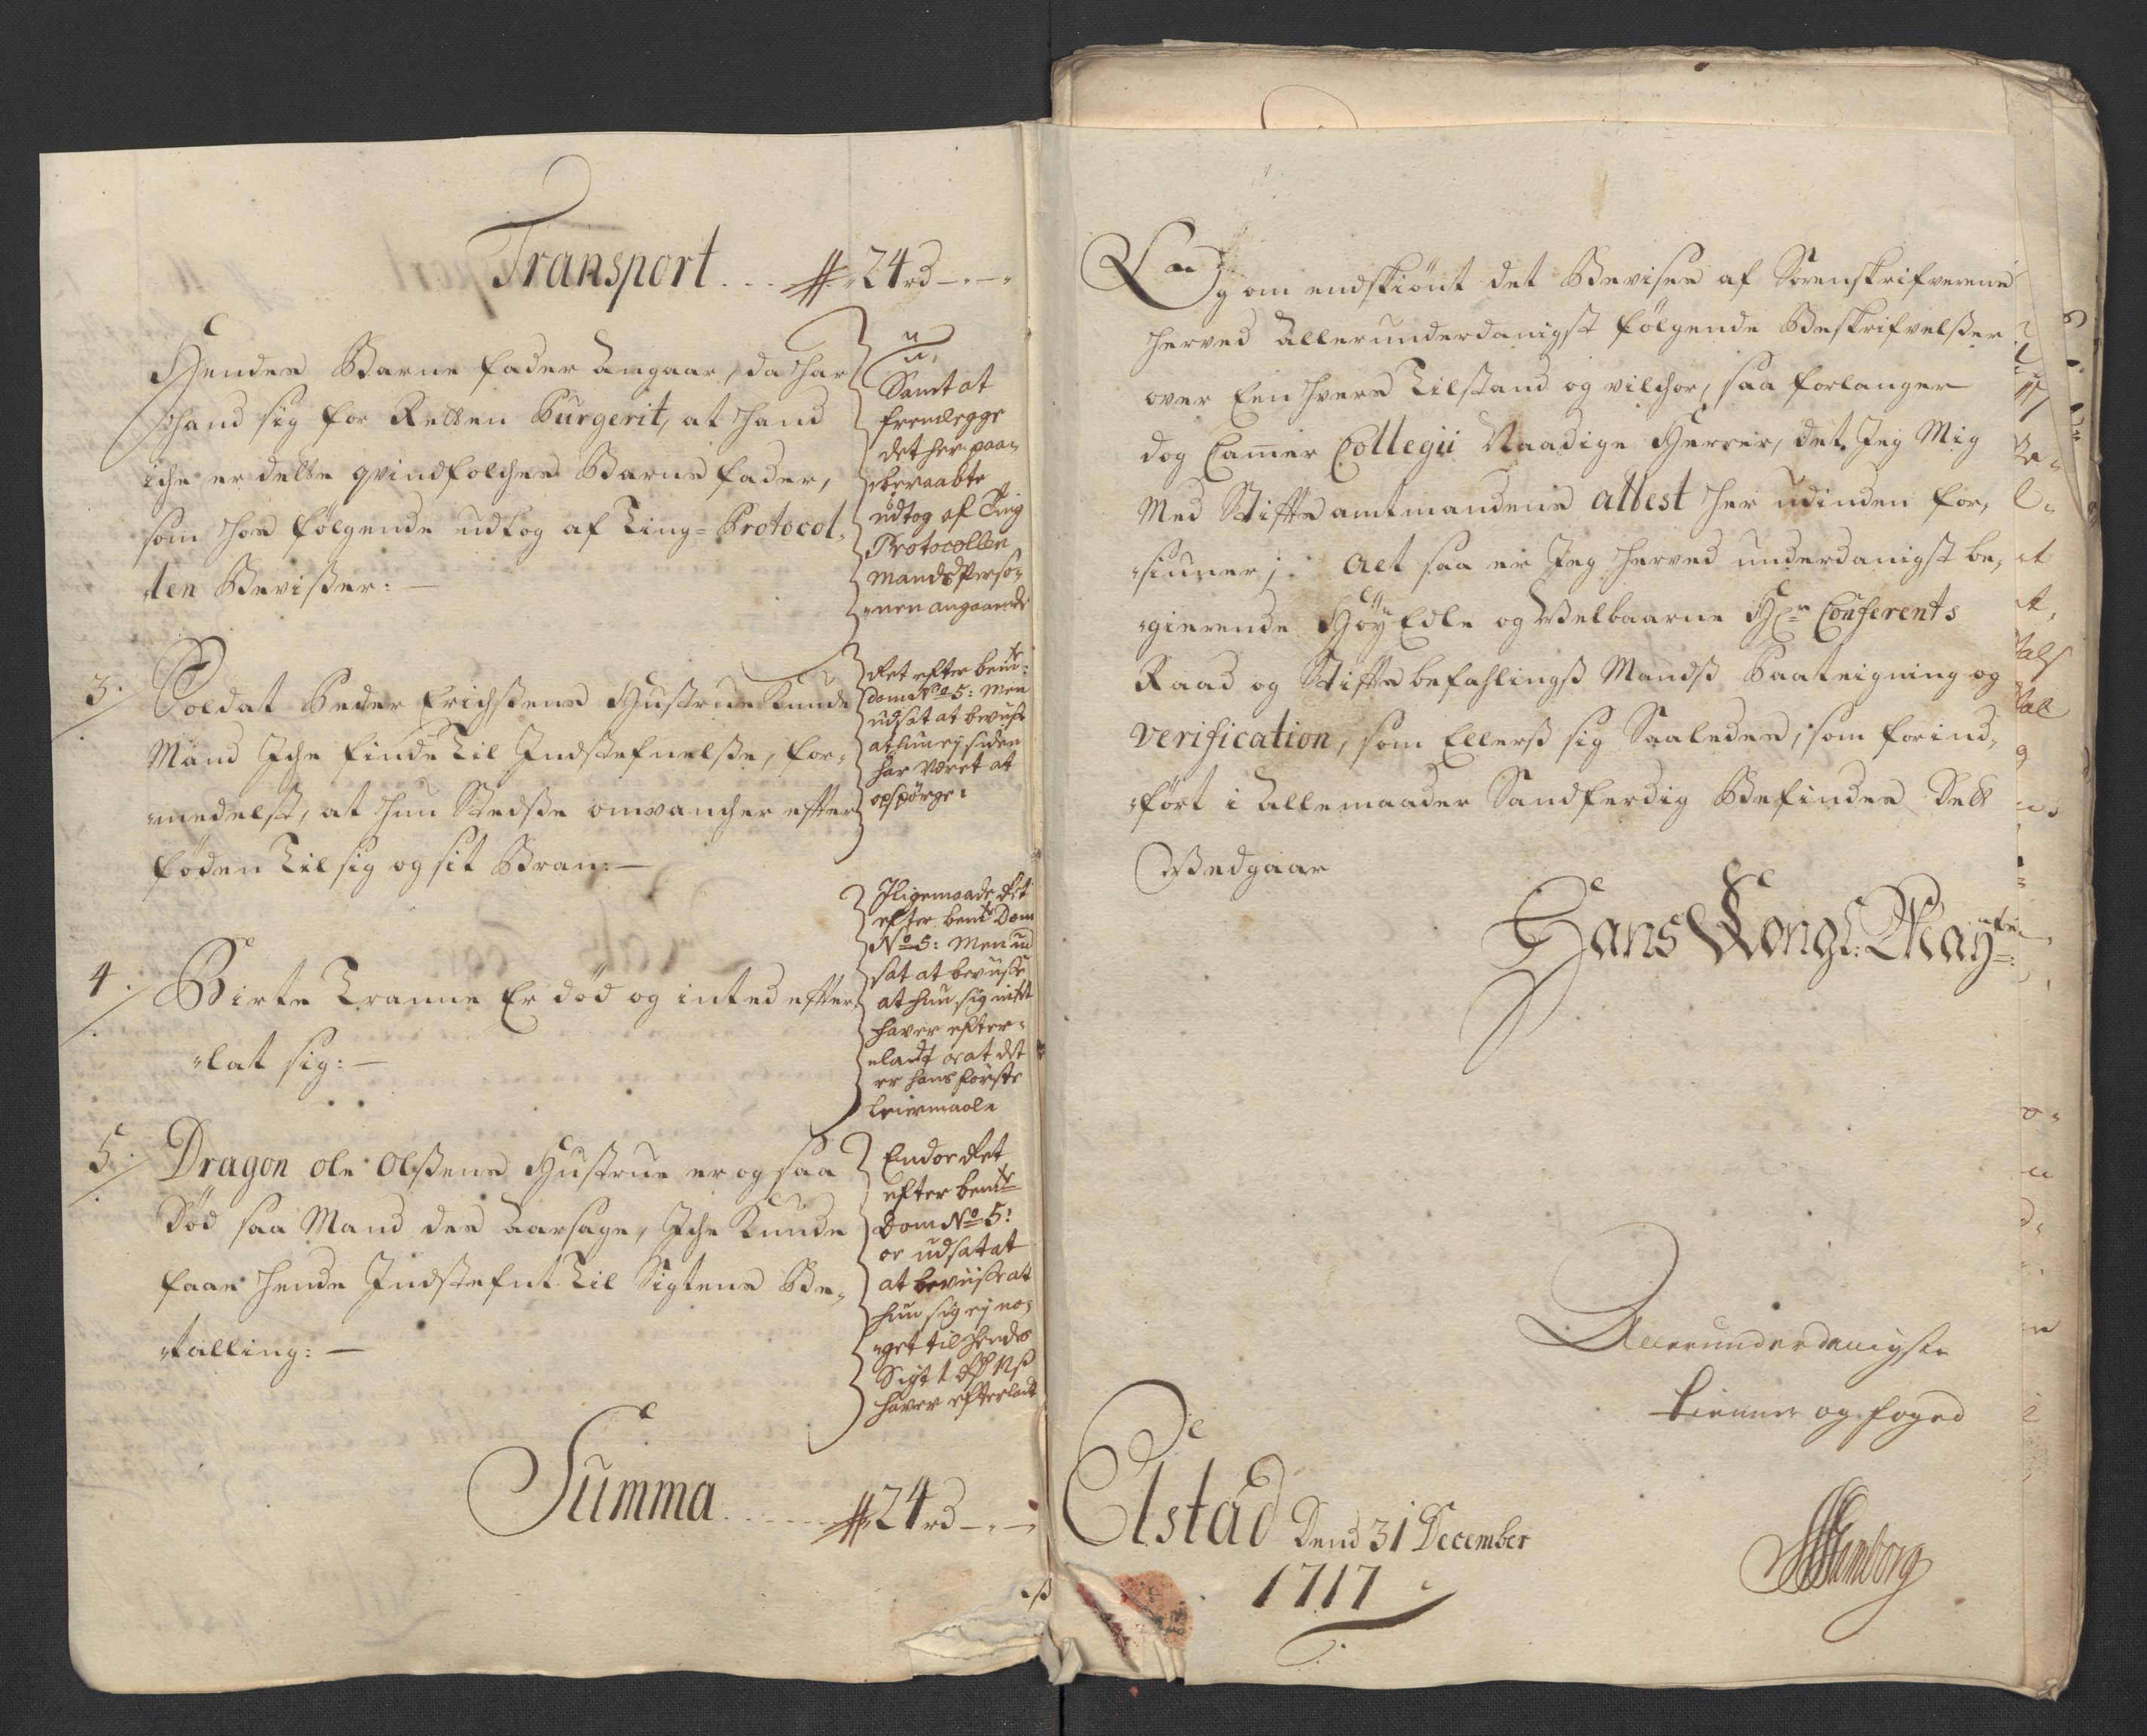 Transport.... 24 rd - . -
Hendes Barne fader Angaar, da har
hand sig for Retten Purgerit, at hand
iche er dette qvindfolches Barne fader,
som hos følgende udtog af Ting-Protocol-
len Bevisser: -
Samt at
fremlegge
det her paa-
beraabte
udtog af Ting
Protocollen
mands Perso-
nen angaaende
3. Soldat Peder Erichsens Hustrue Kunde
Mand Iche finde Til Indstefnelsse, for-
medelst, at hun Stedsse omvancher efter
føden Til sig og sit Barn: -
Det efter bemte:
Dom No 5: Men
udsat at beviise
at hun ej siden
har været at
opspørge:
4. Birte Tranne Er død og inted efter-
lat sig: -
Iligemaade det
efter bemte Dom
No 5: Men ud
sat at beviise
at hun sig intet
haver efter-
ladt og at det
er hans første
Leiermaale
5. Dragon ole Olssens Hustrue er og saa
Død saa Mand des Aarsage, Iche Kunde
faae hende Indstefnt Til Sigtens Be-
talling: -
Endor det
efter bemte
Dom No 5:
er udsat at
at beviise at
hun sig ej no-
get til hendes
Sigt 1 rd 12 s
haver efterladt
Summa...... 24 rd - . -
Og om endskiønt det Bevises af Sorenskrifverens
herved Allerunderdanigst følgende Beskrifvelsser
over Een hvers Tilstand og vilchor, saa forlanger
dog Cammer Collegii Naadige Herrer, det Jeg Mig
Med Stiftsamtmandens attest her udinden for-
siuner; Alt saa er Jeg herved underdanigst be-
gierende Høy Edle og Velbaarne Hr Conferents
Raad og Stiftsbefahlings Mands Paateigning og
verification, som Ellers sig Saaledes, som forind-
ført i Allemaader Sandferdig Befindes Dett
Vedgaar
Hans Kongl: Mayts:
Allerunderdanigste
tienner og foged
Elstad Dend 31 December
1717